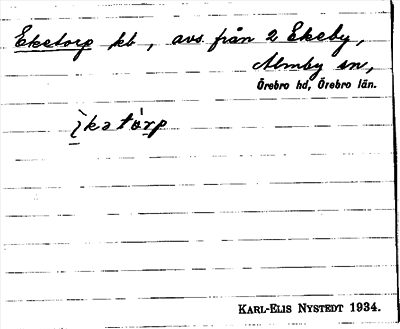 Eketorp kb, avs. från 2 Ekeby,
Almby sn,
Örebro hd, Örebro län.
ìkatórp
KARL-ELIS NYSTEDT 1934.